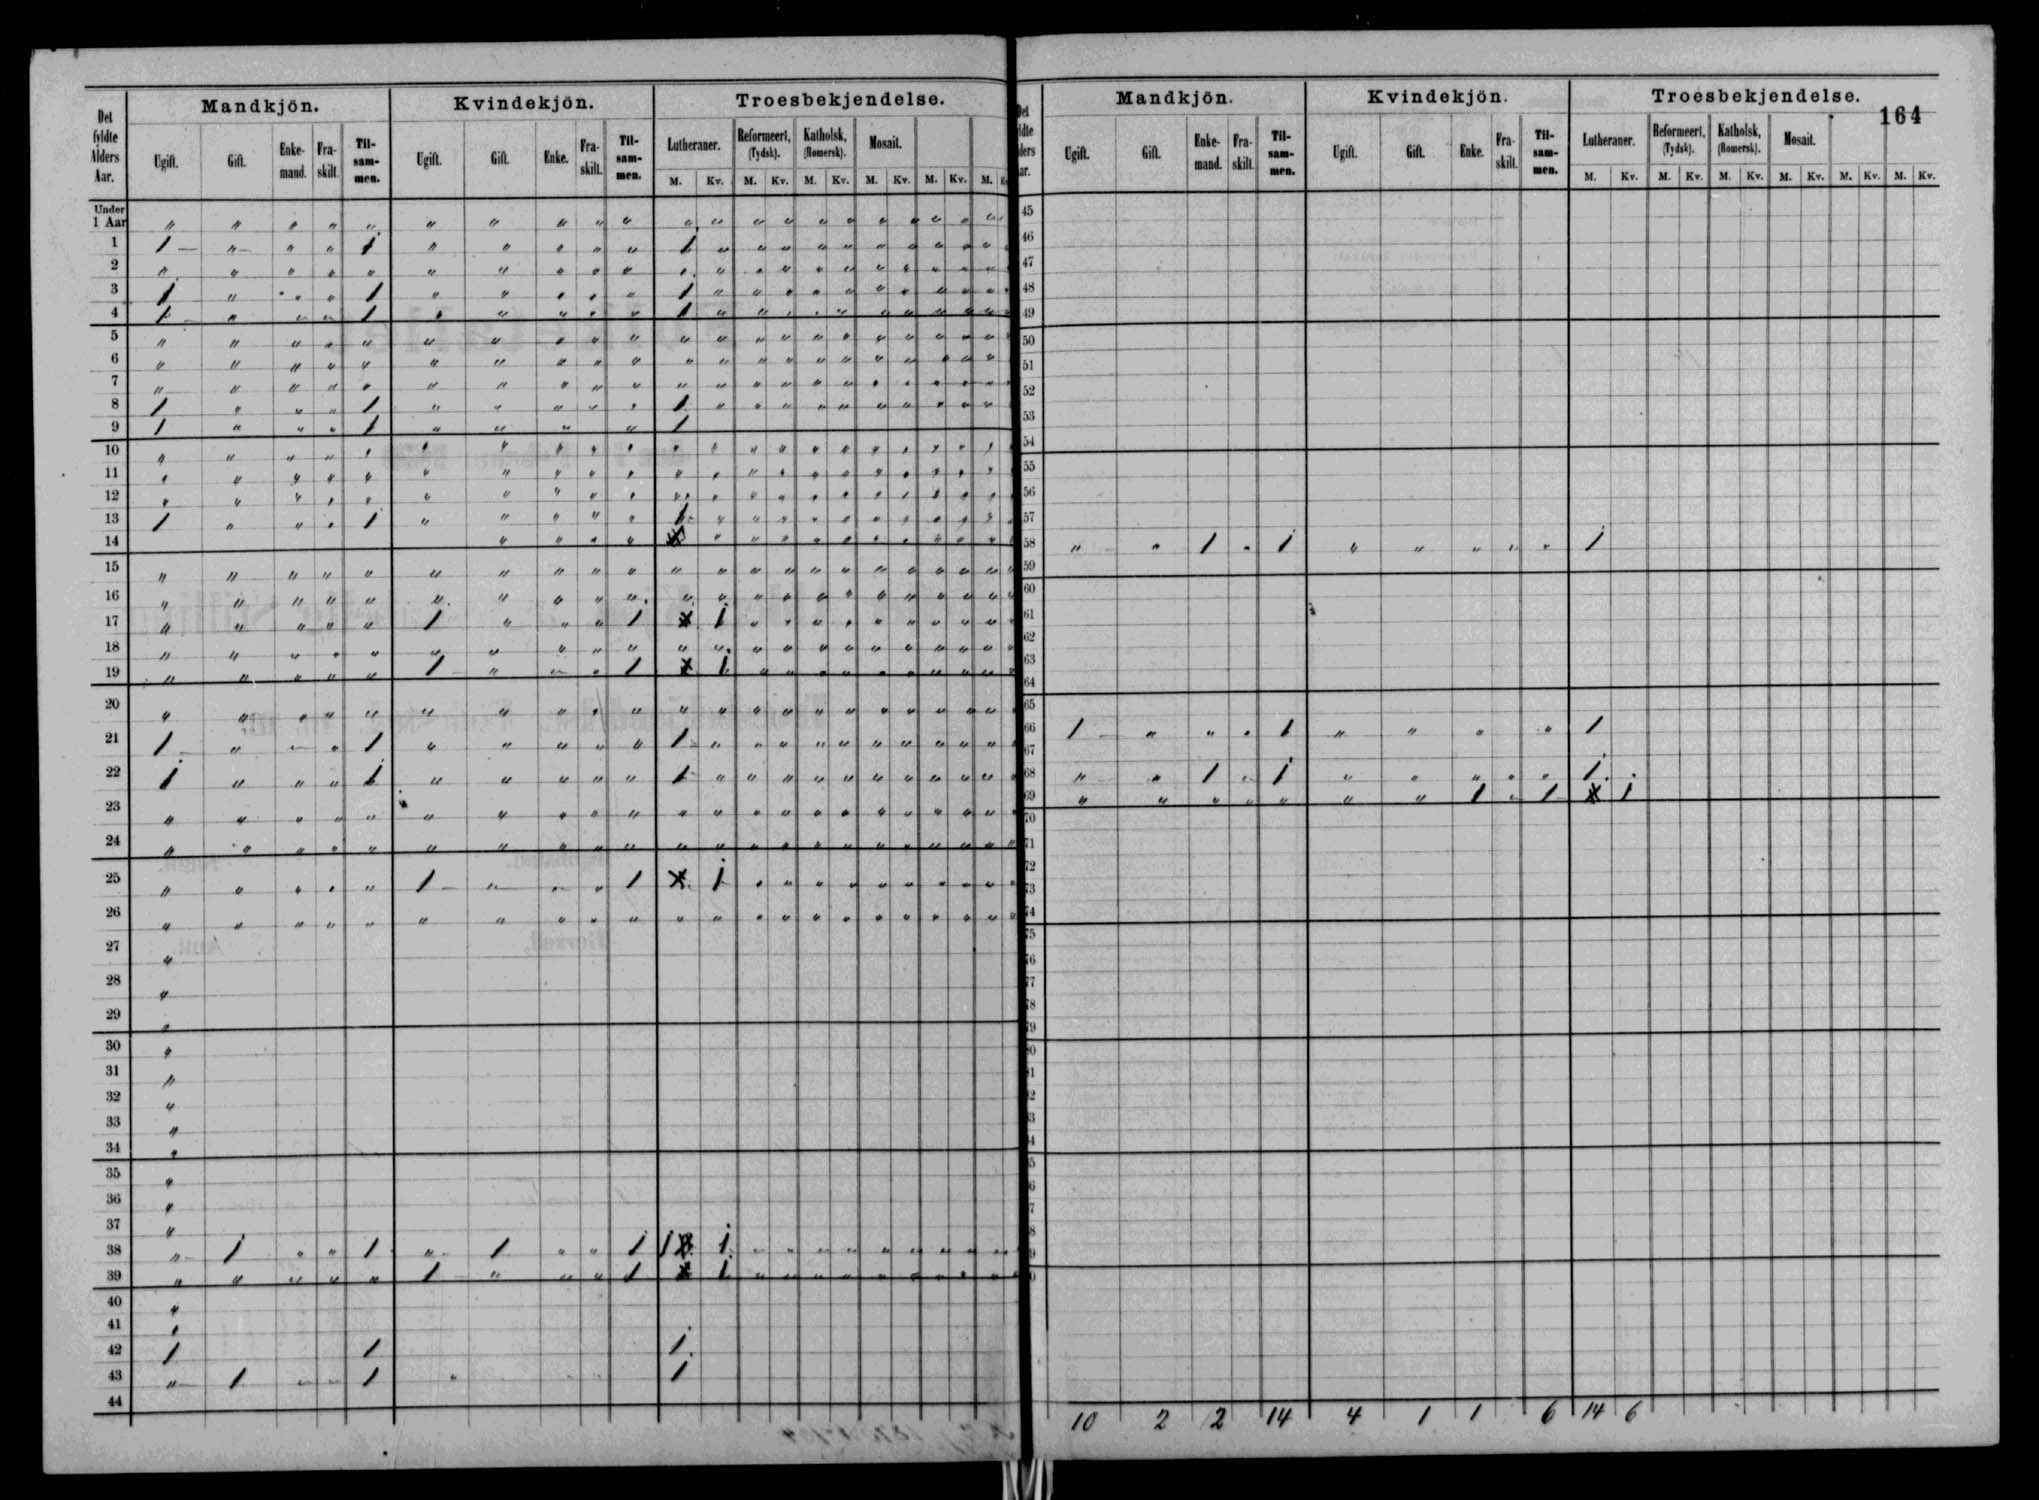 Det fyldte Alders Aar. Mandkjön. Kvindekjön. Troesbekjendelse.
Ugift. Gift. Enke-mand. Fra-skilt. Til-sam-men. Ugift. Gift. Enke. Fra-skilt. Til-sam-men. Lutheraner. Reformeert, (Tydsk). Katholsk, (Romersk). Mosait.
M. Kv. M. Kv. M. Kv. M. Kv. M. Kv. M.
Under 1 Aar " " " " " " " " " " " " " " " " " " " " "
1 1 " " " 1 " " " " " 1 " " " " " " " " " "
2 " " " " " " " " " " " " " " " " " " " " "
3 1 " " " 1 " " " " " 1 " " " " " " " " " "
4 1 " " " 1 " " " " " 1 " " " " " " " " " "
5 " " " " " " " " " " " " " " " " " " " " "
6 " " " " " " " " " " " " " " " " " " " " "
7 " " " " " " " " " " " " " " " " " " " " "
8 1 " " " 1 " " " " " 1 " " " " " " " " " "
9 1 " " " 1 " " " " 1
10 " " " " " " " " " " " " " " " " " " " " "
11 " " " " " " " " " " " " " " " " " " " " "
12 " " " " " " " " " " " " " " " " " " " " "
13 1 " " " 1 " " " " " 1 " " " " " " " " " "
14 " " " " " " " " " " " " " " "
15 " " " " " " " " " " " " " " " " " " " " "
16 " " " " " " " " " " " " " " " " " " " " "
17 " " " " " 1 " " " 1 1 " " " " " " " " "
18 " " " " " " " " " " " " " " " " " " " " "
19 " " " " " 1 " " " 1 1 " " " " " " " " "
20 " " " " " " " " " " " " " " " " " " " " "
21 1 " " " 1 " " " " " 1 " " " " " " " " " "
22 1 " " " 1 " " " " " 1 " " " " " " " " " "
23 " " " " " " " " " " " " " " " " " " " " "
24 " " " " " " " " " " " " " " " " " " " " "
25 " " " " " 1 " " " 1 1 " " " " " " " " "
26 " " " " " " " " " " " " " " " " " " " " "
27 "
28 "
29 "
30 "
31 "
32 "
33 "
34 "
35 "
36 "
37 "
38 " 1 " " 1 " 1 " " 1 1 1 " " " " " " " " "
39 " " " " " 1 " " " 1 1 " " " " " " " " "
40 "
41 "
42 1 1 1
43 " 1 " " 1 " 1
44
164
Mandkjön. Kvindekjön. Troesbekjendelse.
Ugift. Gift. Enke-mand. Fra-skilt. Til-sam-men. Ugift. Gift. Enke. Fra-skilt. Til-sam-men. Lutheraner. Reformeert, (Tydsk). Katholsk, (Romersk). Mosait.
M. Kv. M. Kv. M. Kv. M. Kv. M. Kv. M. Kv.
45
46
47
48
49
50
51
52
53
54
55
56
57
58 " " 1 " 1 " " " " " 1
59
60
61
62
63
64
65
66 1 " " " 1 " " " " 1
67
68 " " 1 " 1 " " " " " 1 "
69 " " " " " " " 1 " 1 1
70
71
72
73
74
75
76
77
78
79
10 2 2 14 4 1 1 6 14 6